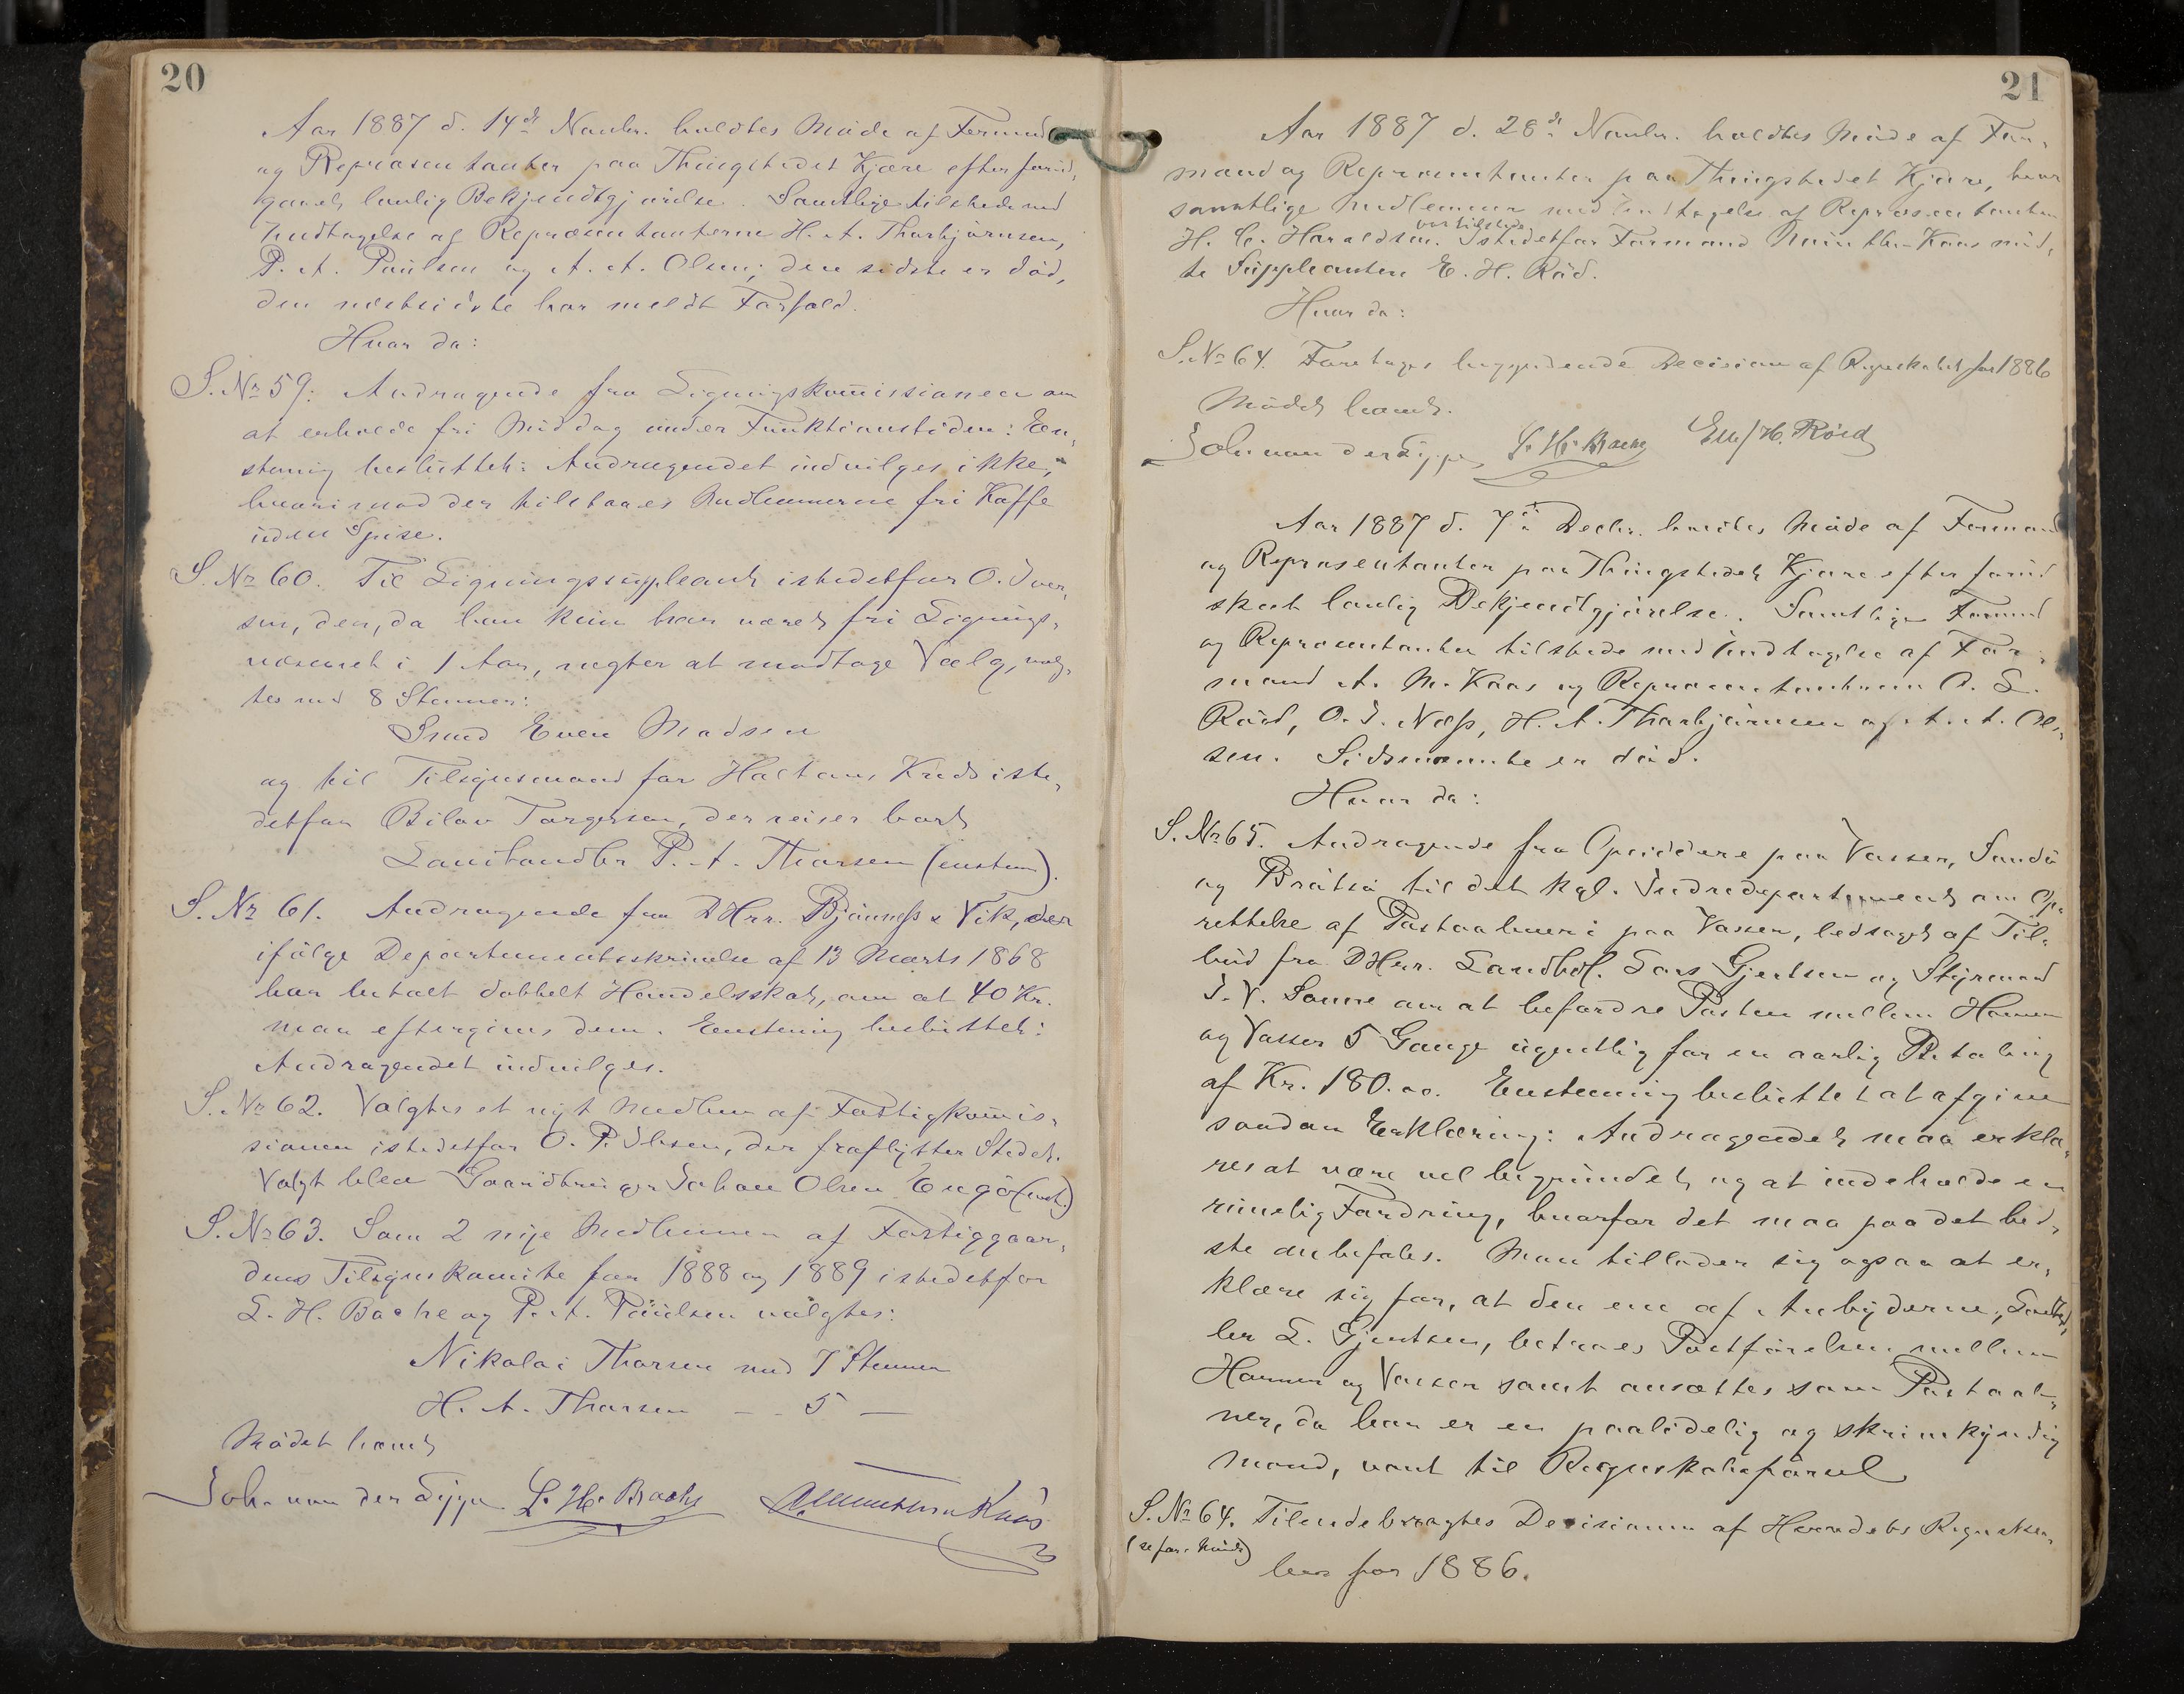 20
Aar 1887 d. 14de Novbr. holdtes Möde af Formd
og Repræsentanter paa Thingstedet Kjære efter forud,
gaaet lovlig Bekjendtgjörelse. Samtlige tilstede med
Undtagelse af Repræsentanterne H. A. Thorbjörnsen,
P. A. Paulsen og A. A. Olsen; den sidste er död,
den næstsidste har meldt Forfald.
Hvor da:
S. No 59: Andragende fra Ligningskommissionen om
at erholde fri Middag under Funktionstiden: Een,
stemig besluttet: Andragendet indvilges ikke,
hvorimod der tilstaaes Medlemmerne fri Kaffe
uden Spise.
S. No 60. Til Ligningssuppleant istedetfor O. Iver,
sen, der, da han kun har været fri Lignings,
væsenet i 1 Aar, nægter at modtage Valg, valg,
tes med 8 Stemmer:
Lrmd Even Madsen
og til Tilsynsmand for Haltans Kreds iste,
detfor Bilov Torgersen, der reiser bort
Landhandler P. A. Thorsen (enstem).
S. No 61. Andragende fra DHrr. Bjönness & Vik, der
ifölge Departementsskrivelse af 13 Marts 1868
har betalt dobbelt Handelsskat, om at 40 Kr.
maa eftergives dem. Eenstemig besluttet:
Andragendet indvilges.
S. No 62. Valgtes et nyt Medlem af Fattigkommis,
sionen istedetfor O. P. Ibsen, der fraflytter Stedet.
Valgt blev Gaardbruger Johan Olsen Engö (enst.)
S. No 63. Som 2 nye Medlemmer af Fattiggaar,
dens Tilsynskomite for 1888 og 1889 istedetfor
L. H. Bache og P. A. Paulsen valgtes:
Nikolai Thorsen med 7 Stemmer
H. A. Thorsen — 5 —
Mödet hævet
Joh. von der Lippe L. H. Bache A Munthe Kaas
21
Aar 1887 d. 28de Novbr. holdtes Möde af For,
mænd og Repræsentanter paa Thingstedet Kjære, hvor
samtlige Medlemmer med Undtagelse af Repræsentanten
H. C. Haraldsen var tilstede. Istedetfor Formand Munthe-Kaas möd,
te Suppleanten E. H. Röd.
Hvor da:
S. No 64. Foretages Decision af Regnskabet for 1886
Mödet hævet.
Joh. von der Lippe L. H. Bache Ellef H. Röed
Aar 1887 d. 7de Decbr. holdtes Möde af Formænd
og Repræsentanter paa Thingstedet Kjære efter forud
skeet lovlig Bekjendtgjörelse. Samtlige Formd
og Repræsentanter tilstede med Undtagelse af For,
mand A. M. Kaas og Repræsentanterne A. L.
Röed, O. J. Næss, H. A. Thorbjörnsen og A. A. Ol,
sen. Sidsnævnte er död.
Hvor da:
S. No 65. Andragende fra Opsiddere paa Vasser, Sandö
og Brötsö til det kgl. Indredepartement om Op,
rettelse af Postaabneri paa Vasser, ledsaget af Til,
bud fra DHrr. Landhdl. Lars Gjertsen og Styrmand
J. V. Sonne om at befordre Posten mellem Havnen
og Vasser 5 Gange ugentlig for en aarlig Betaling
af Kr. 180.00. Eenstemig besluttet at afgive
saadan Erklæring: Andragendet maa erklæ,
res at være vel begrundet, og at indeholde en
rimelig Fordring, hvorfor det maa paa det bed,
ste anbefales. Man tillader sig ogsaa at er,
klære sig for, at den ene af Anbyderne, Landhd,
ler L. Gjertsen, betroes Postförelsen mellem
Havnen og Vasser samt ansættes som Postaab,
ner, da han er en paalidelig og skrivekyndig
Mand, vant til Regnskabsförsel
S. No 64. Tilendebragtes Decisionen af Herredets Regnska,
(se for. Möde)
ber for 1886.